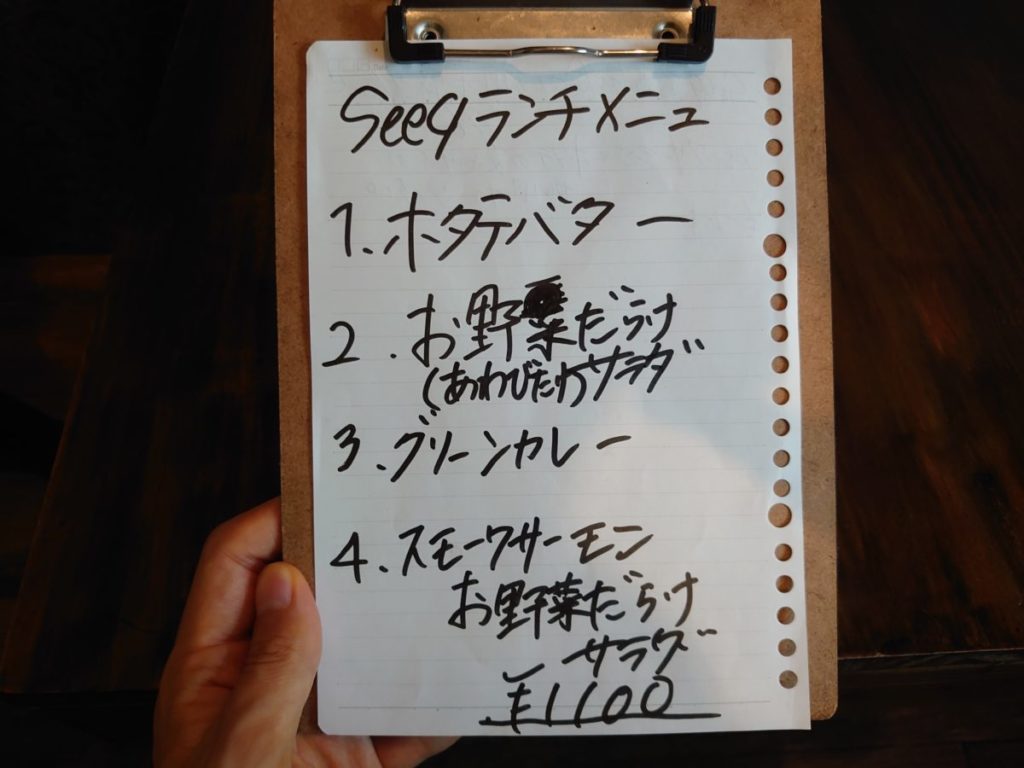 Seeq ランチメニュー
1. ホタテバター
2. お野菜だらけ
(あわびたけサラダ
3. グリーンカレー
4. スモークサーモン
お野菜だらけ
サラダ
¥1100